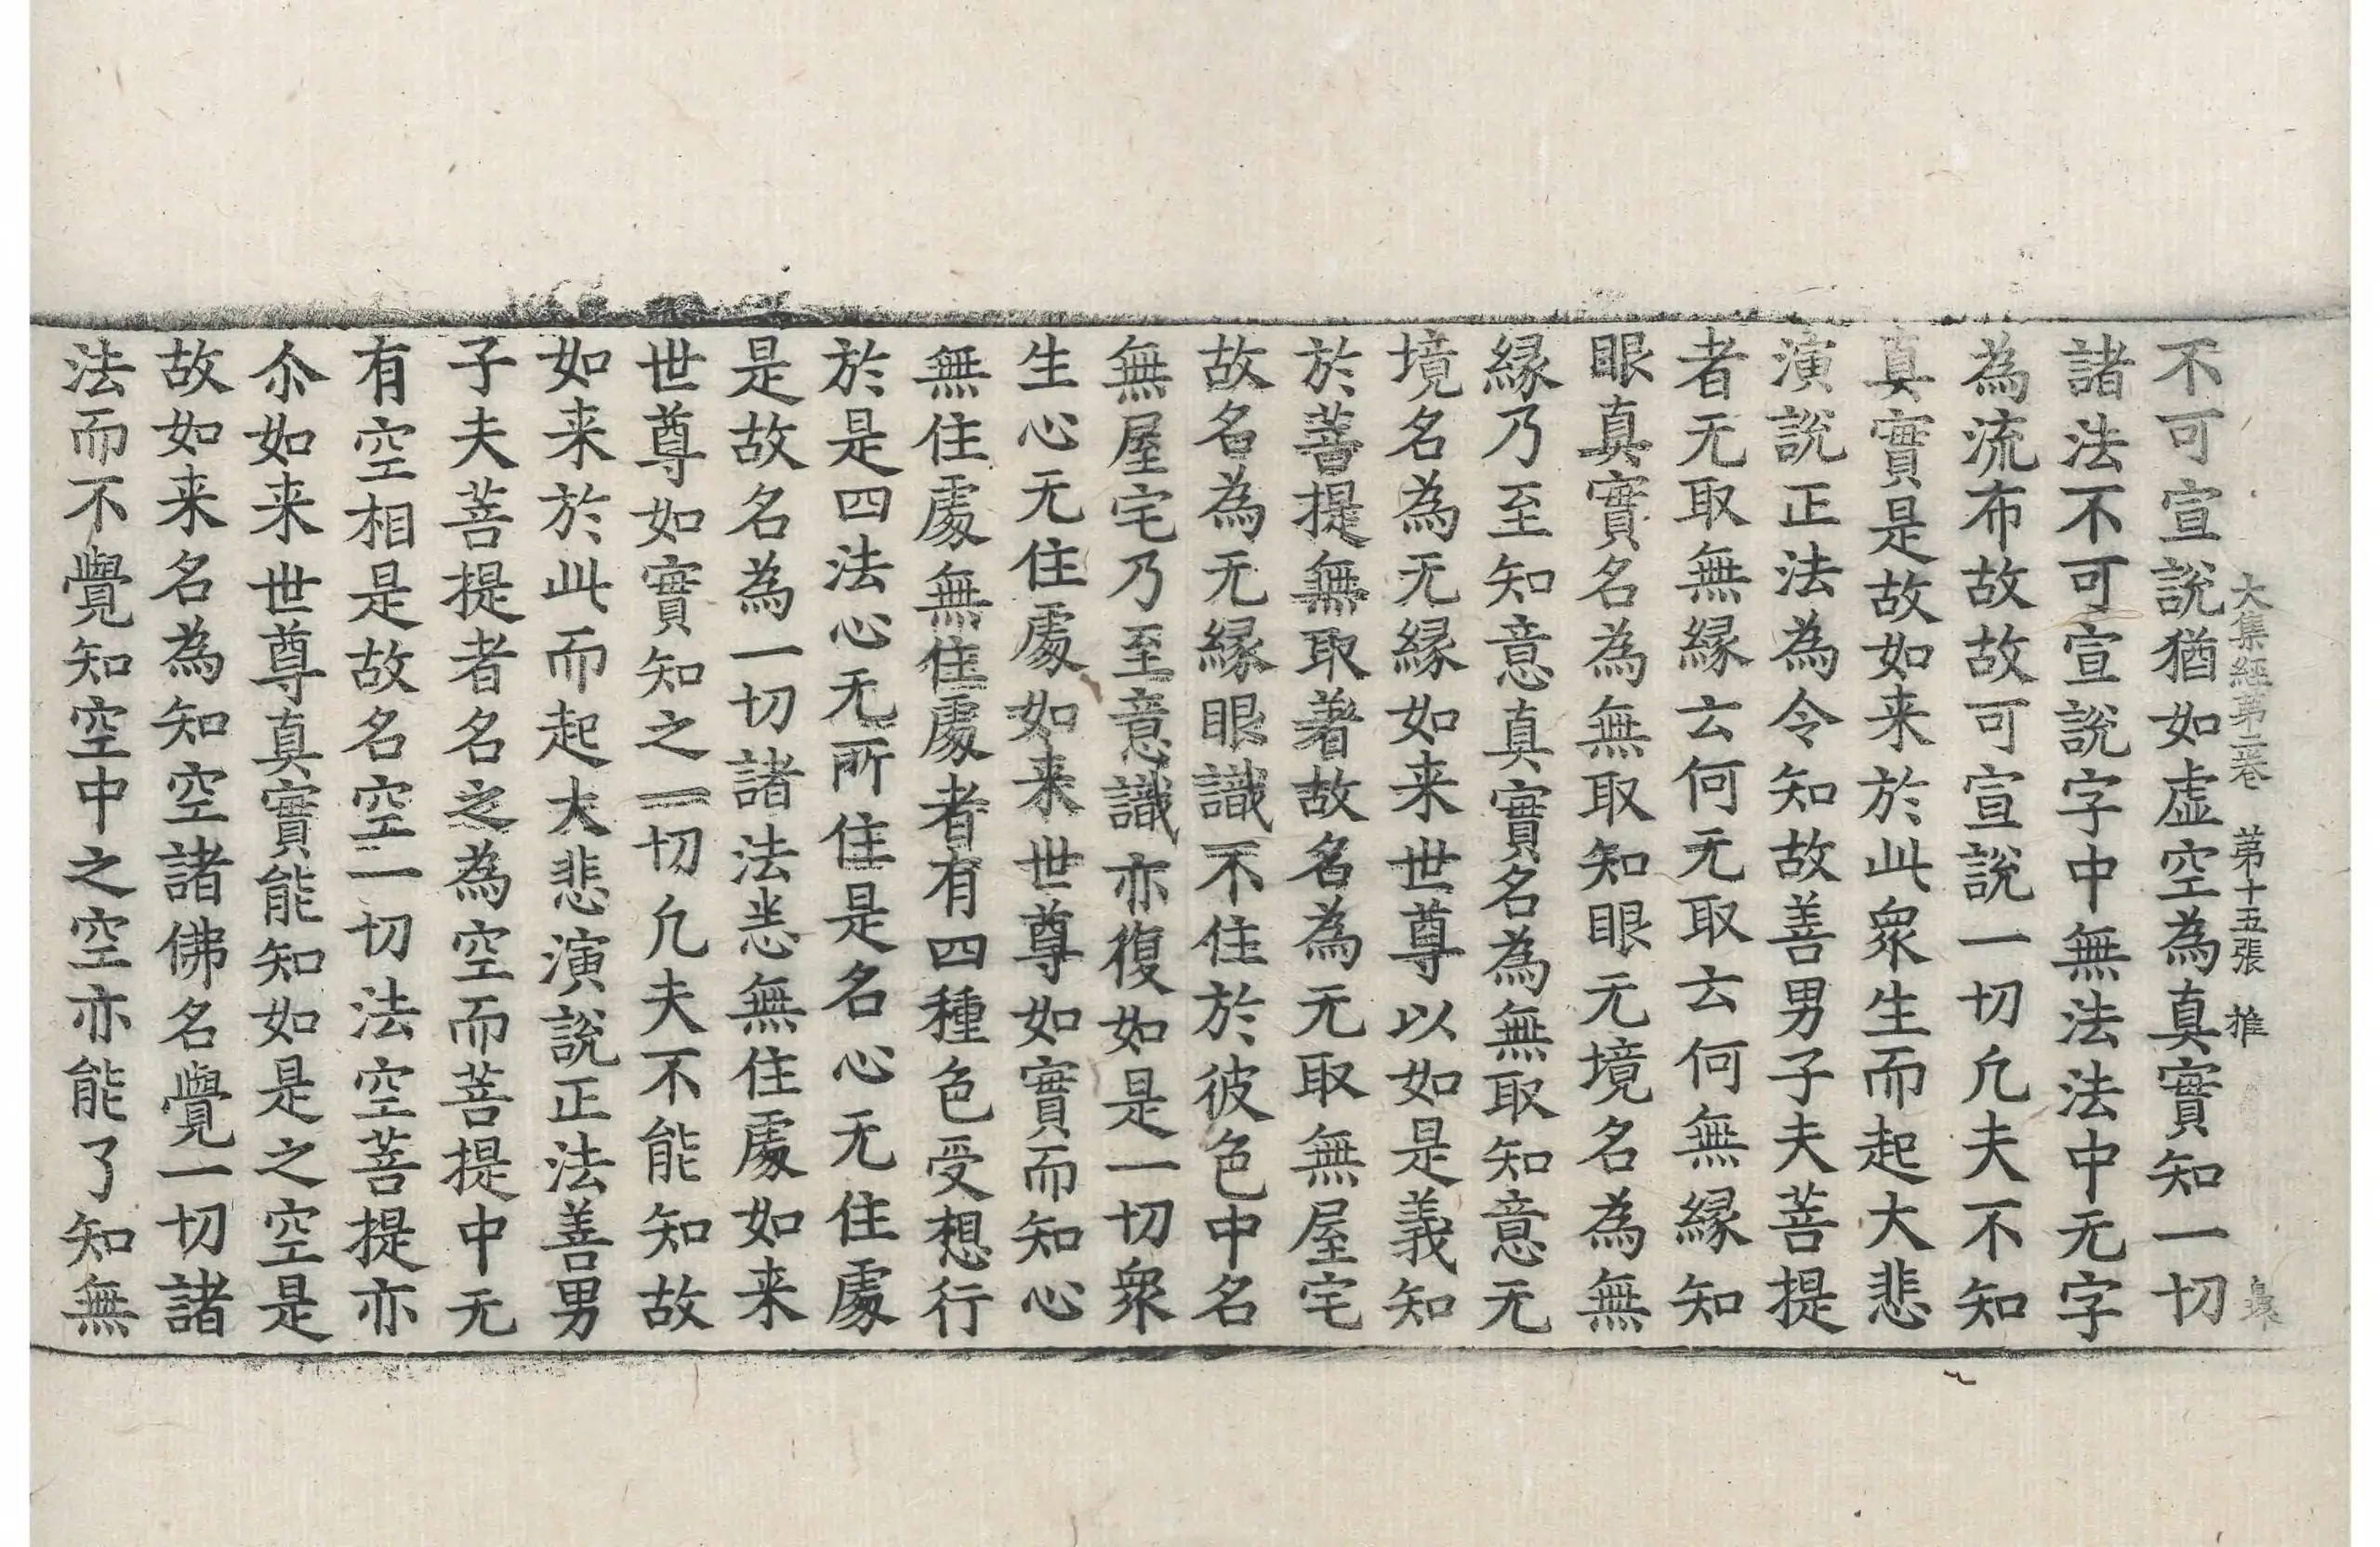 大集經第二卷 第十五張 推
不可宣說猶如虛空為真實知一切
諸法不可宣說字中無法法中无字
為流布故故可宣說一切凢夫不知
真實是故如来於此眾生而起大悲
演說正法為令知故善男子夫菩提
者无取無縁云何无取云何無縁知
眼真實名為無取知眼无境名為無
縁乃至知意真實名為無取知意无
境名為无縁如来世尊以如是義知
於菩提無取著故名為无取無屋宅
故名為无縁眼識不住於彼色中名
無屋宅乃至意識亦復如是一切眾
生心无住處如来世尊如實而知心
無住處無住處者有四種色受想行
於是四法心无所住是名心无住處
是故名為一切諸法悉無住處如来
世尊如實知之一切凢夫不能知故
如来於此而起大悲演說正法善男
子夫菩提者名之為空而菩提中无
有空相是故名空一切法空菩提亦
尒如来世尊真實能知如是之空是
故如来名為知空諸佛名覺一切諸
法而不覺知空中之空亦能了知無